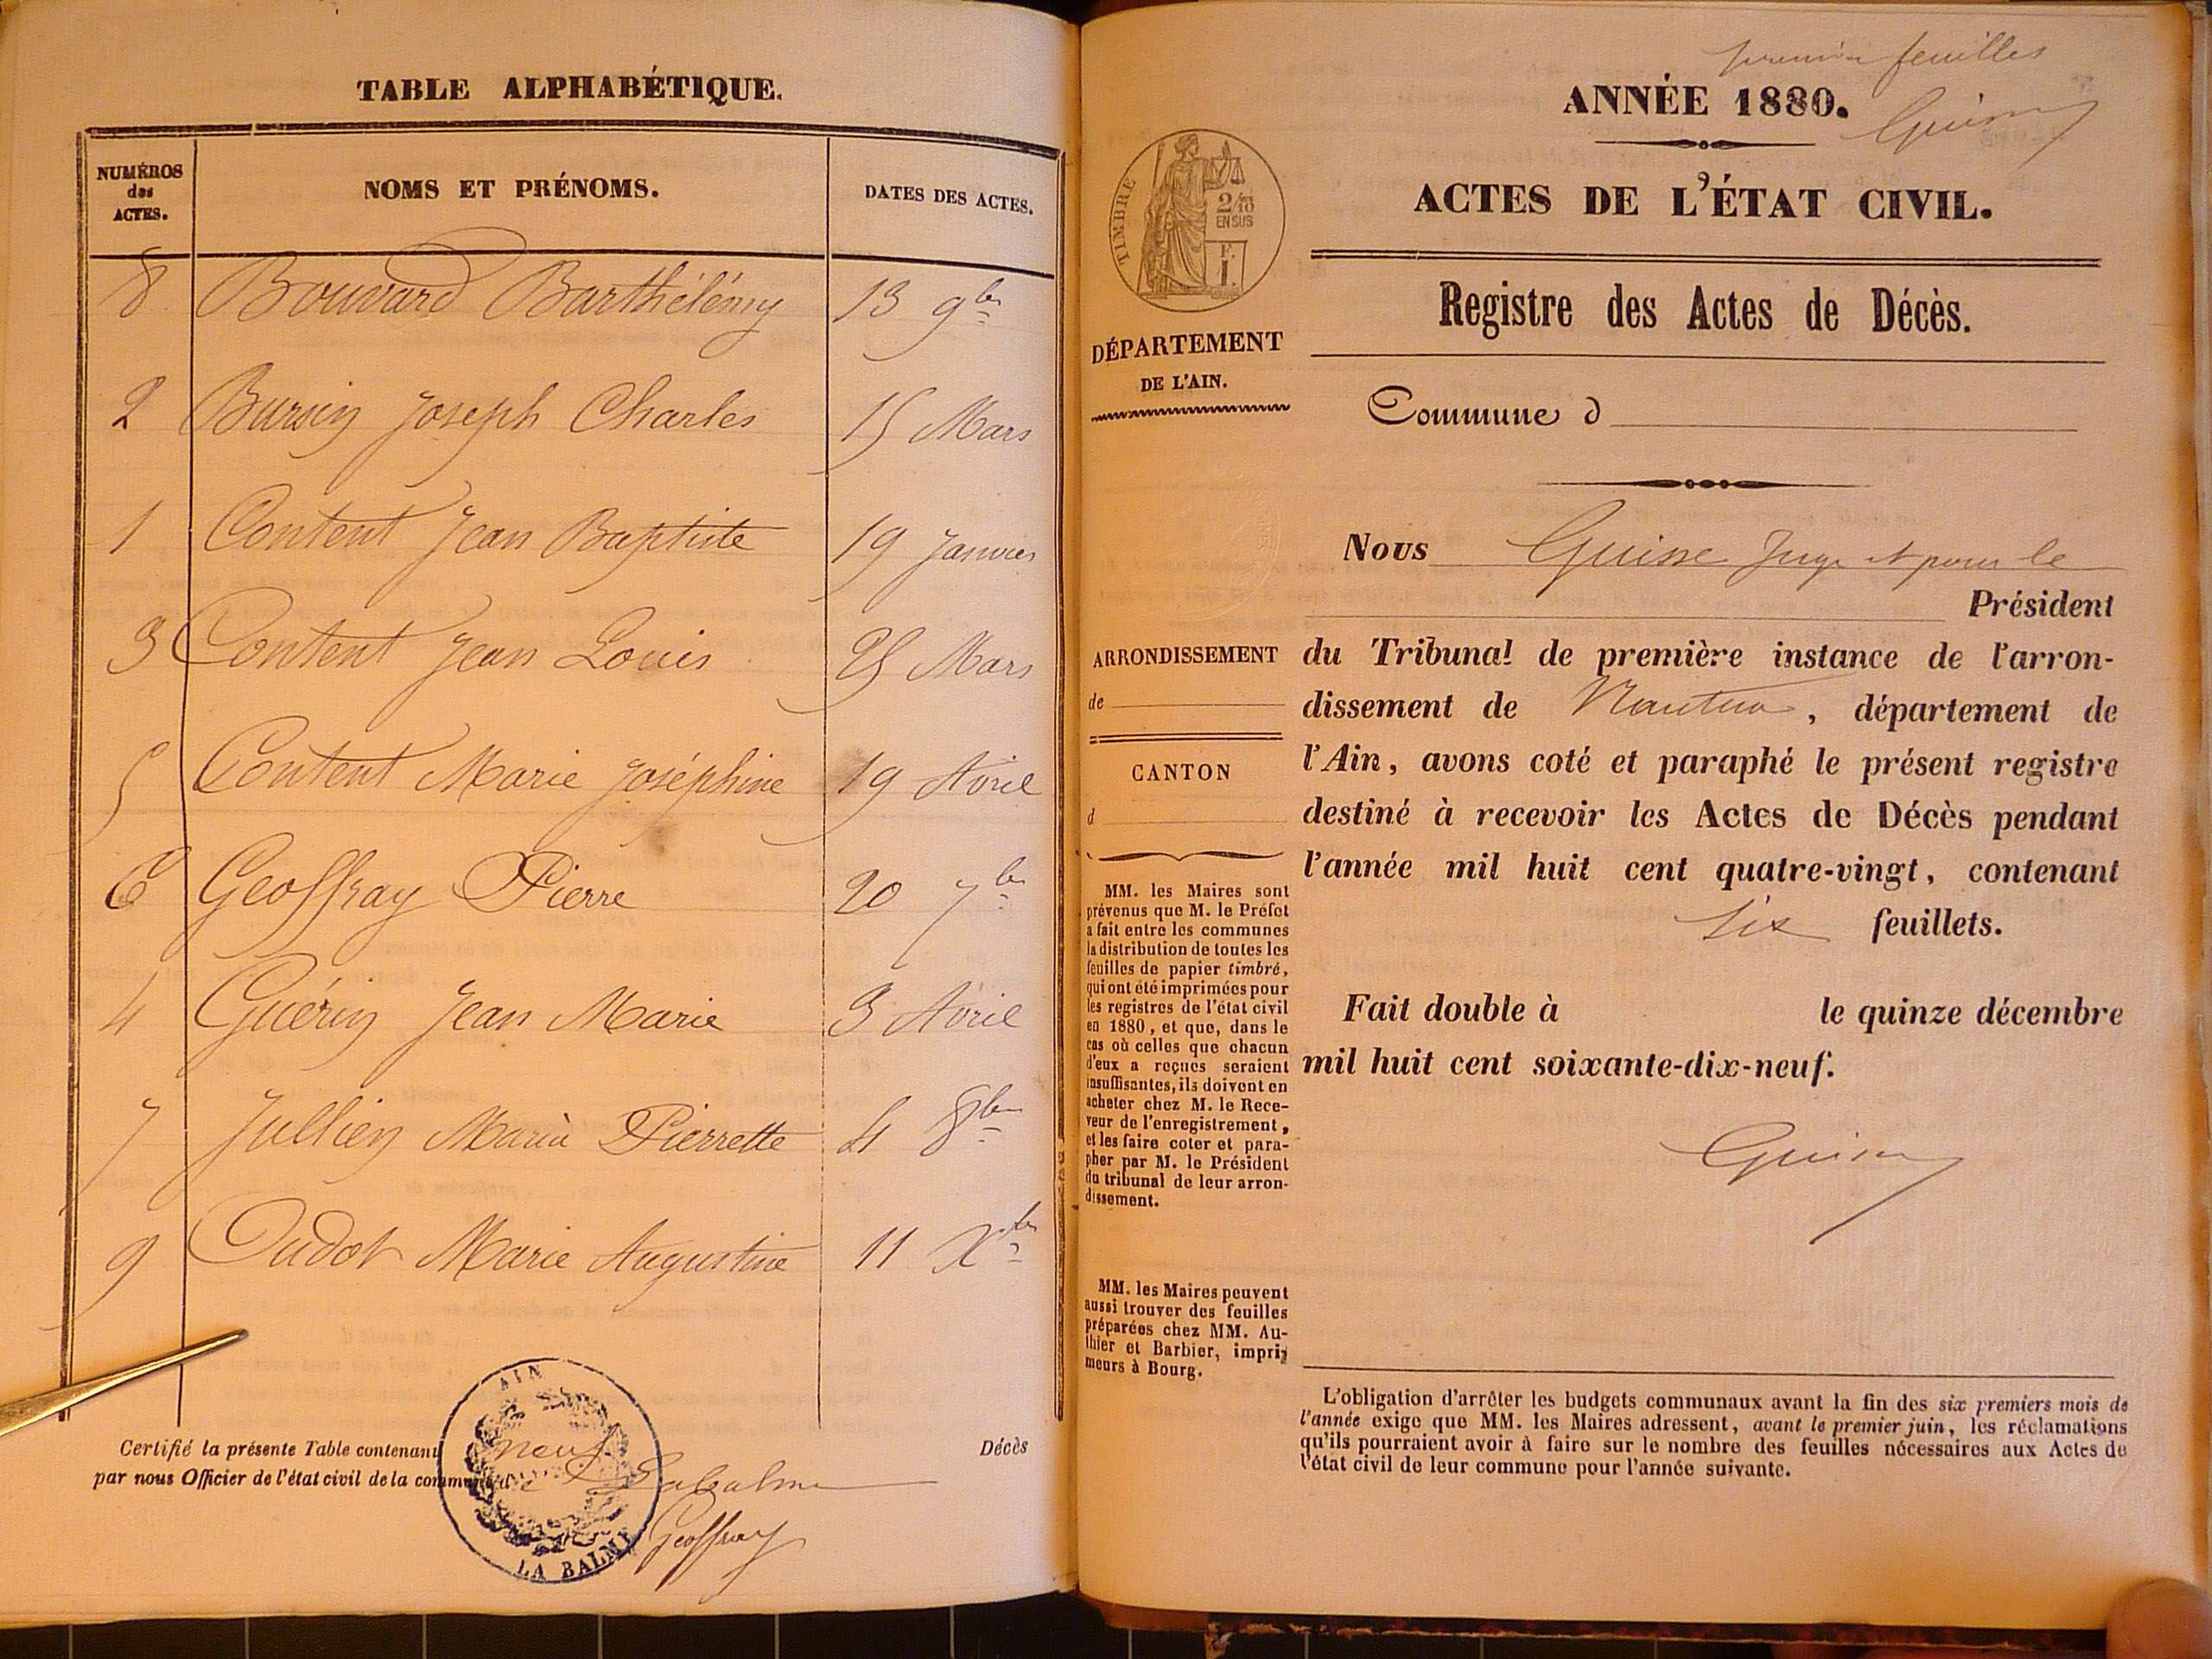 TABLE ALPHABÉTIQUE.
NUMÉROS
des
ACTES.
NOMS ET PRÉNOMS.
DATES DES ACTES.
8 Bouvard Barthélémy 13 9bre
2 Bursin Joseph Charles 15 Mars
1 Content Jean Baptiste 19 Janvier
3 Content Jean Louis 25 Mars
5 Content Marie Joséphine 19 Avril
6 Geoffray Pierre 20 7bre
4 Guérin Jean Marie 3 Avril
7 Jullien Maria Pierrette 4 8bre
9 Oudot Marie Augustine 11 Xbre
Certifié la présente Table contenant neuf Décès
par nous Officier de l'état civil de la commune de Labalme
Geoffray
AIN
LA BALME
premier feuillet
Guisse
ANNÉE 1880.
ACTES DE L'ÉTAT CIVIL.
Registre des Actes de Décès.
TIMBRE
2/10
EN SUS
F.
1.
DÉPARTEMENT
DE L'AIN.
Commune d
Nous Guisse Juge et pour le
Président
du Tribunal de première instance de l'arron-
dissement de Nantua, département de
l'Ain, avons coté et paraphé le présent registre
destiné à recevoir les Actes de Décès pendant
l'année mil huit cent quatre-vingt, contenant
six feuillets.
Fait double à le quinze décembre
mil huit cent soixante-dix-neuf.
Guisse
ARRONDISSEMENT
de
CANTON
d
MM. les Maires sont
prévenus que M. le Préfet
a fait entre les communes
la distribution de toutes les
feuilles de papier timbré,
qui ont été imprimées pour
les registres de l'état civil
en 1880, et que, dans le
cas où celles que chacun
d'eux a reçues seraient
insuffisantes, ils doivent en
acheter chez M. le Rece-
veur de l'enregistrement,
et les faire coter et para-
pher par M. le Président
du tribunal de leur arron-
dissement.
MM. les Maires peuvent
aussi trouver des feuilles
préparées chez MM. Au-
thier et Barbier, impri-
meurs à Bourg.
L'obligation d'arrêter les budgets communaux avant la fin des six premiers mois de
l'année exige que MM. les Maires adressent, avant le premier juin, les réclamations
qu'ils pourraient avoir à faire sur le nombre des feuilles nécessaires aux Actes de
l'état civil de leur commune pour l'année suivante.